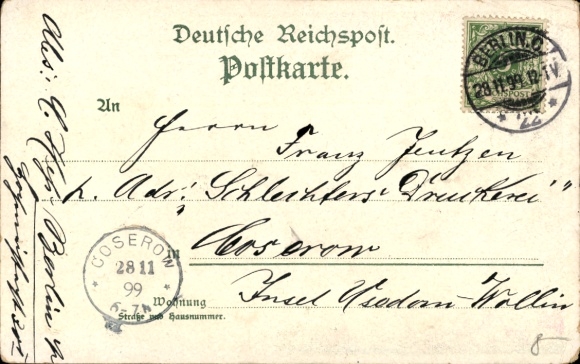 Deutsche Reichspost.
Postkarte.
An
Herrn
Franz Jentzen
p. Adr: "Schlechters Druckerei"
in Coserow
Wohnung Insel Usedom-Wollin
Straße und Hausnummer.
BERLIN, C.
28.11.99. 12-1V
* 22 *
COSEROW
28 11
99
6-7N
Abs:
Berlin
8